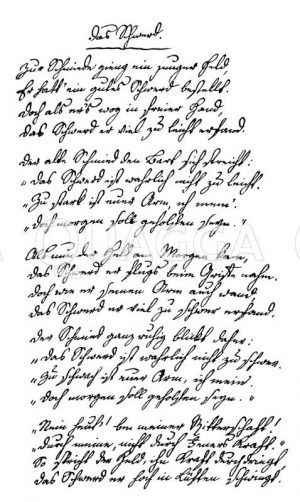 Das Schwerd.
Zur Schmiede ging ein junger Held,
Er hatt' ein gutes Schwerd bestellt.
Doch als er's wog in freier Hand,
das Schwerd er viel zu leicht erfand.
Der alte Schmied den Bart sich streicht:
„Das Schwerd ist wahrlich nicht zu leicht.
„Zu stark ist euer Arm, ich mein'.
„Doch morgen soll geholfen seyn."
Als nun der Held am Morgen kam,
das Schwerd er flugs beim Griffe nahm.
Doch wie er seinen Arm auf wand
das Schwerd er viel zu schwer erfand.
Der Schmied ganz ruhig blickt daher:
„Das Schwerd ist wahrlich nicht zu schwer.
„Zu schwach ist euer Arm, ich mein
„doch morgen soll geholfen seyn. "
„Nein heut! bey meiner Ritterschaft!
„durch meine, nicht durch Feuers Kraft."
So spricht der Held, ihn Kraft durchdringt
das Schwerd er hoch in Lüften schwingt.
QUAGGA